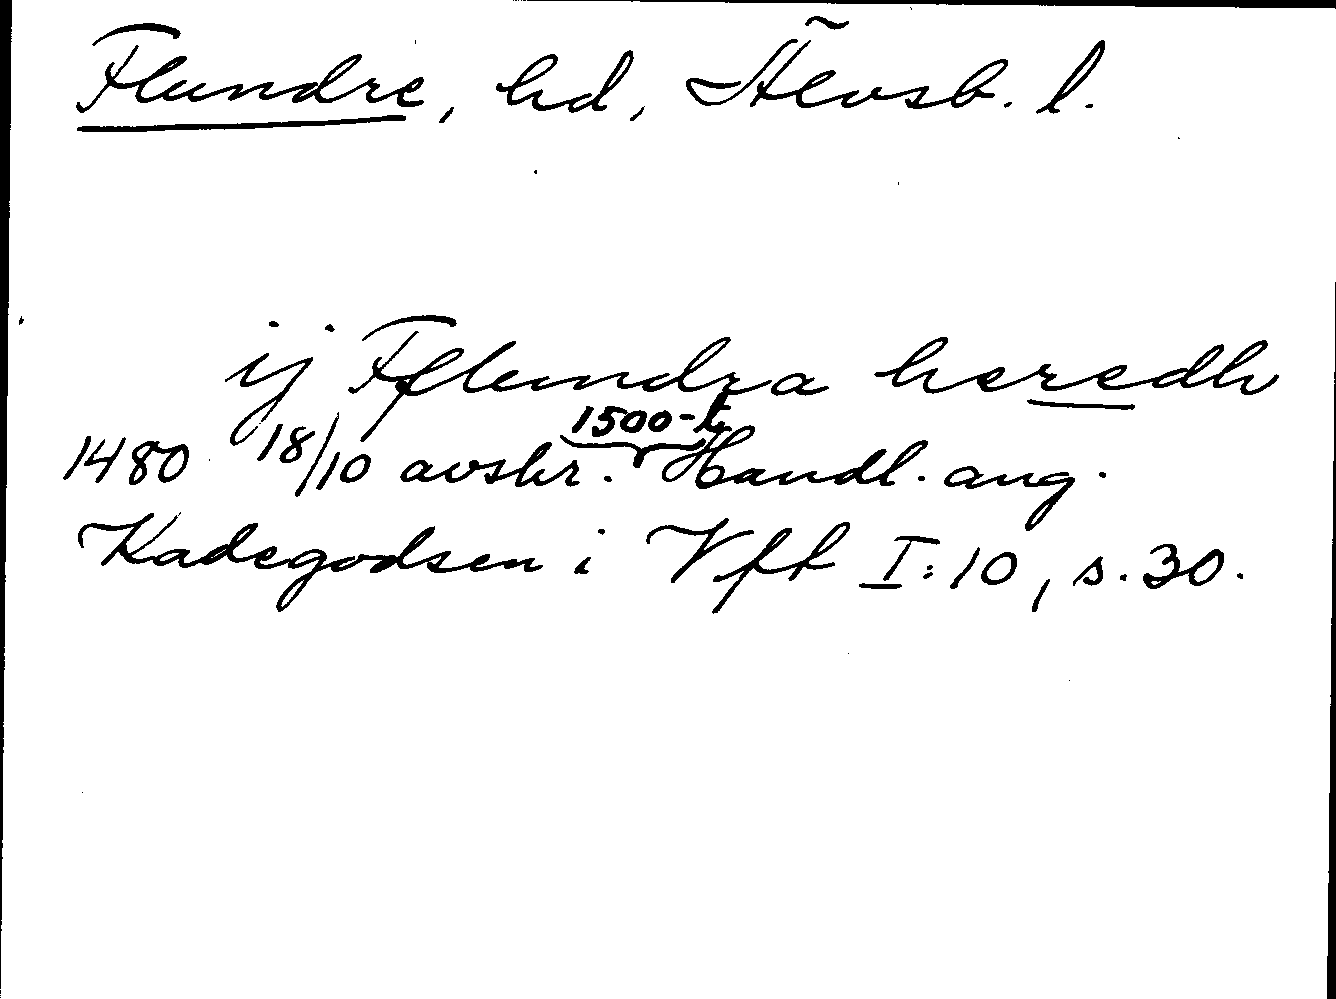 Flundre, hd, Älvsb. l.
ij Fflundra heredh
1480 18/10 avskr. 1500-t. Handl. ang.
Kadegodsen i Vff I:10, s. 30.